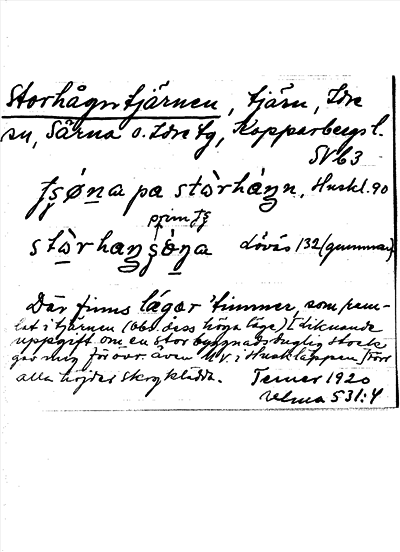 Storhågntjärnen, tjärn, Idre
sn, Särna o. Idre tg, Kopparbergs l.
SV 63
pa storhågn, Huskl. 90
prim
Lövås 132 (gumman)
Där finns lågor timmer som ram-
lat i tjärnen (obs. dess höga läge) [liknande
uppgift om en stor byggnadsduglig stock
gav mig för övr. även NV. i Husklappen] förr
alla höjder skogklädda. Terner 1920
Velma S 31:4